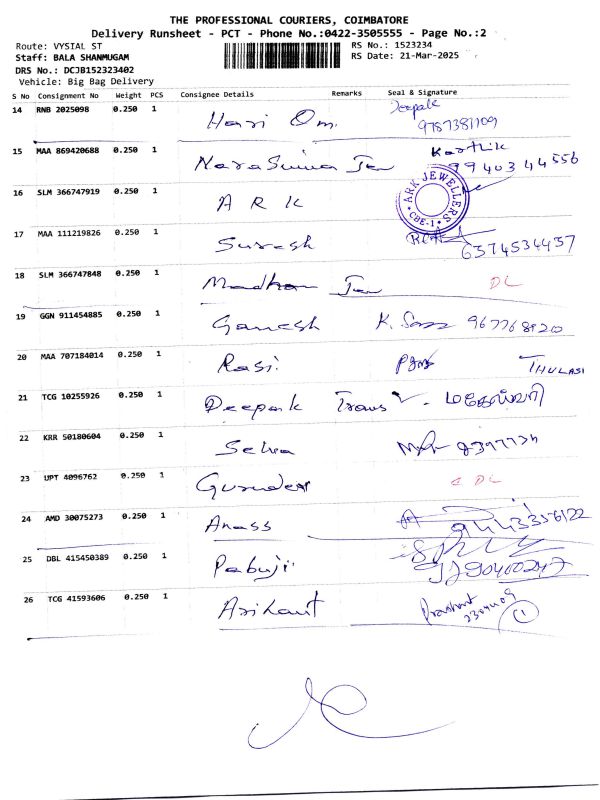 THE PROFESSIONAL COURIERS, COIMBATORE
Delivery Runsheet - PCT - Phone No.:0422-3505555 - Page No.:2
Route: VYSIAL ST RS No.: 1523234
Staff: BALA SHANMUGAM RS Date: 21-Mar-2025
DRS No.: DCJB152323402
Vehicle: Big Bag Delivery
S No Consignment No Weight PCS Consignee Details Remarks Seal & Signature
14 RNB 2025098 0.250 1 Hari Om. Deepak
9787381109
15 MAA 869420688 0.250 1 Karthik
99403 44556
16 SLM 366747919 0.250 1 A R K ARK JEWELLERS CBE-1
17 MAA 111219826 0.250 1 Suresh 6374534437
18 SLM 366747848 0.250 1 Madhan Jew DL
19 GGN 911454885 0.250 1 Ganesh K.
20 MAA 707184014 0.250 1 Rasi THULASI
21 TCG 10255926 0.250 1 Deepak Trans மகேஸ்வரி
22 KRR 50180604 0.250 1 Selva
23 UPT 4096762 0.250 1 DL
24 AMD 30075273 0.250 1 Anass
25 DBL 415450389 0.250 1 Pabuji
26 TCG 41593606 0.250 1 Arihant Prashant
1